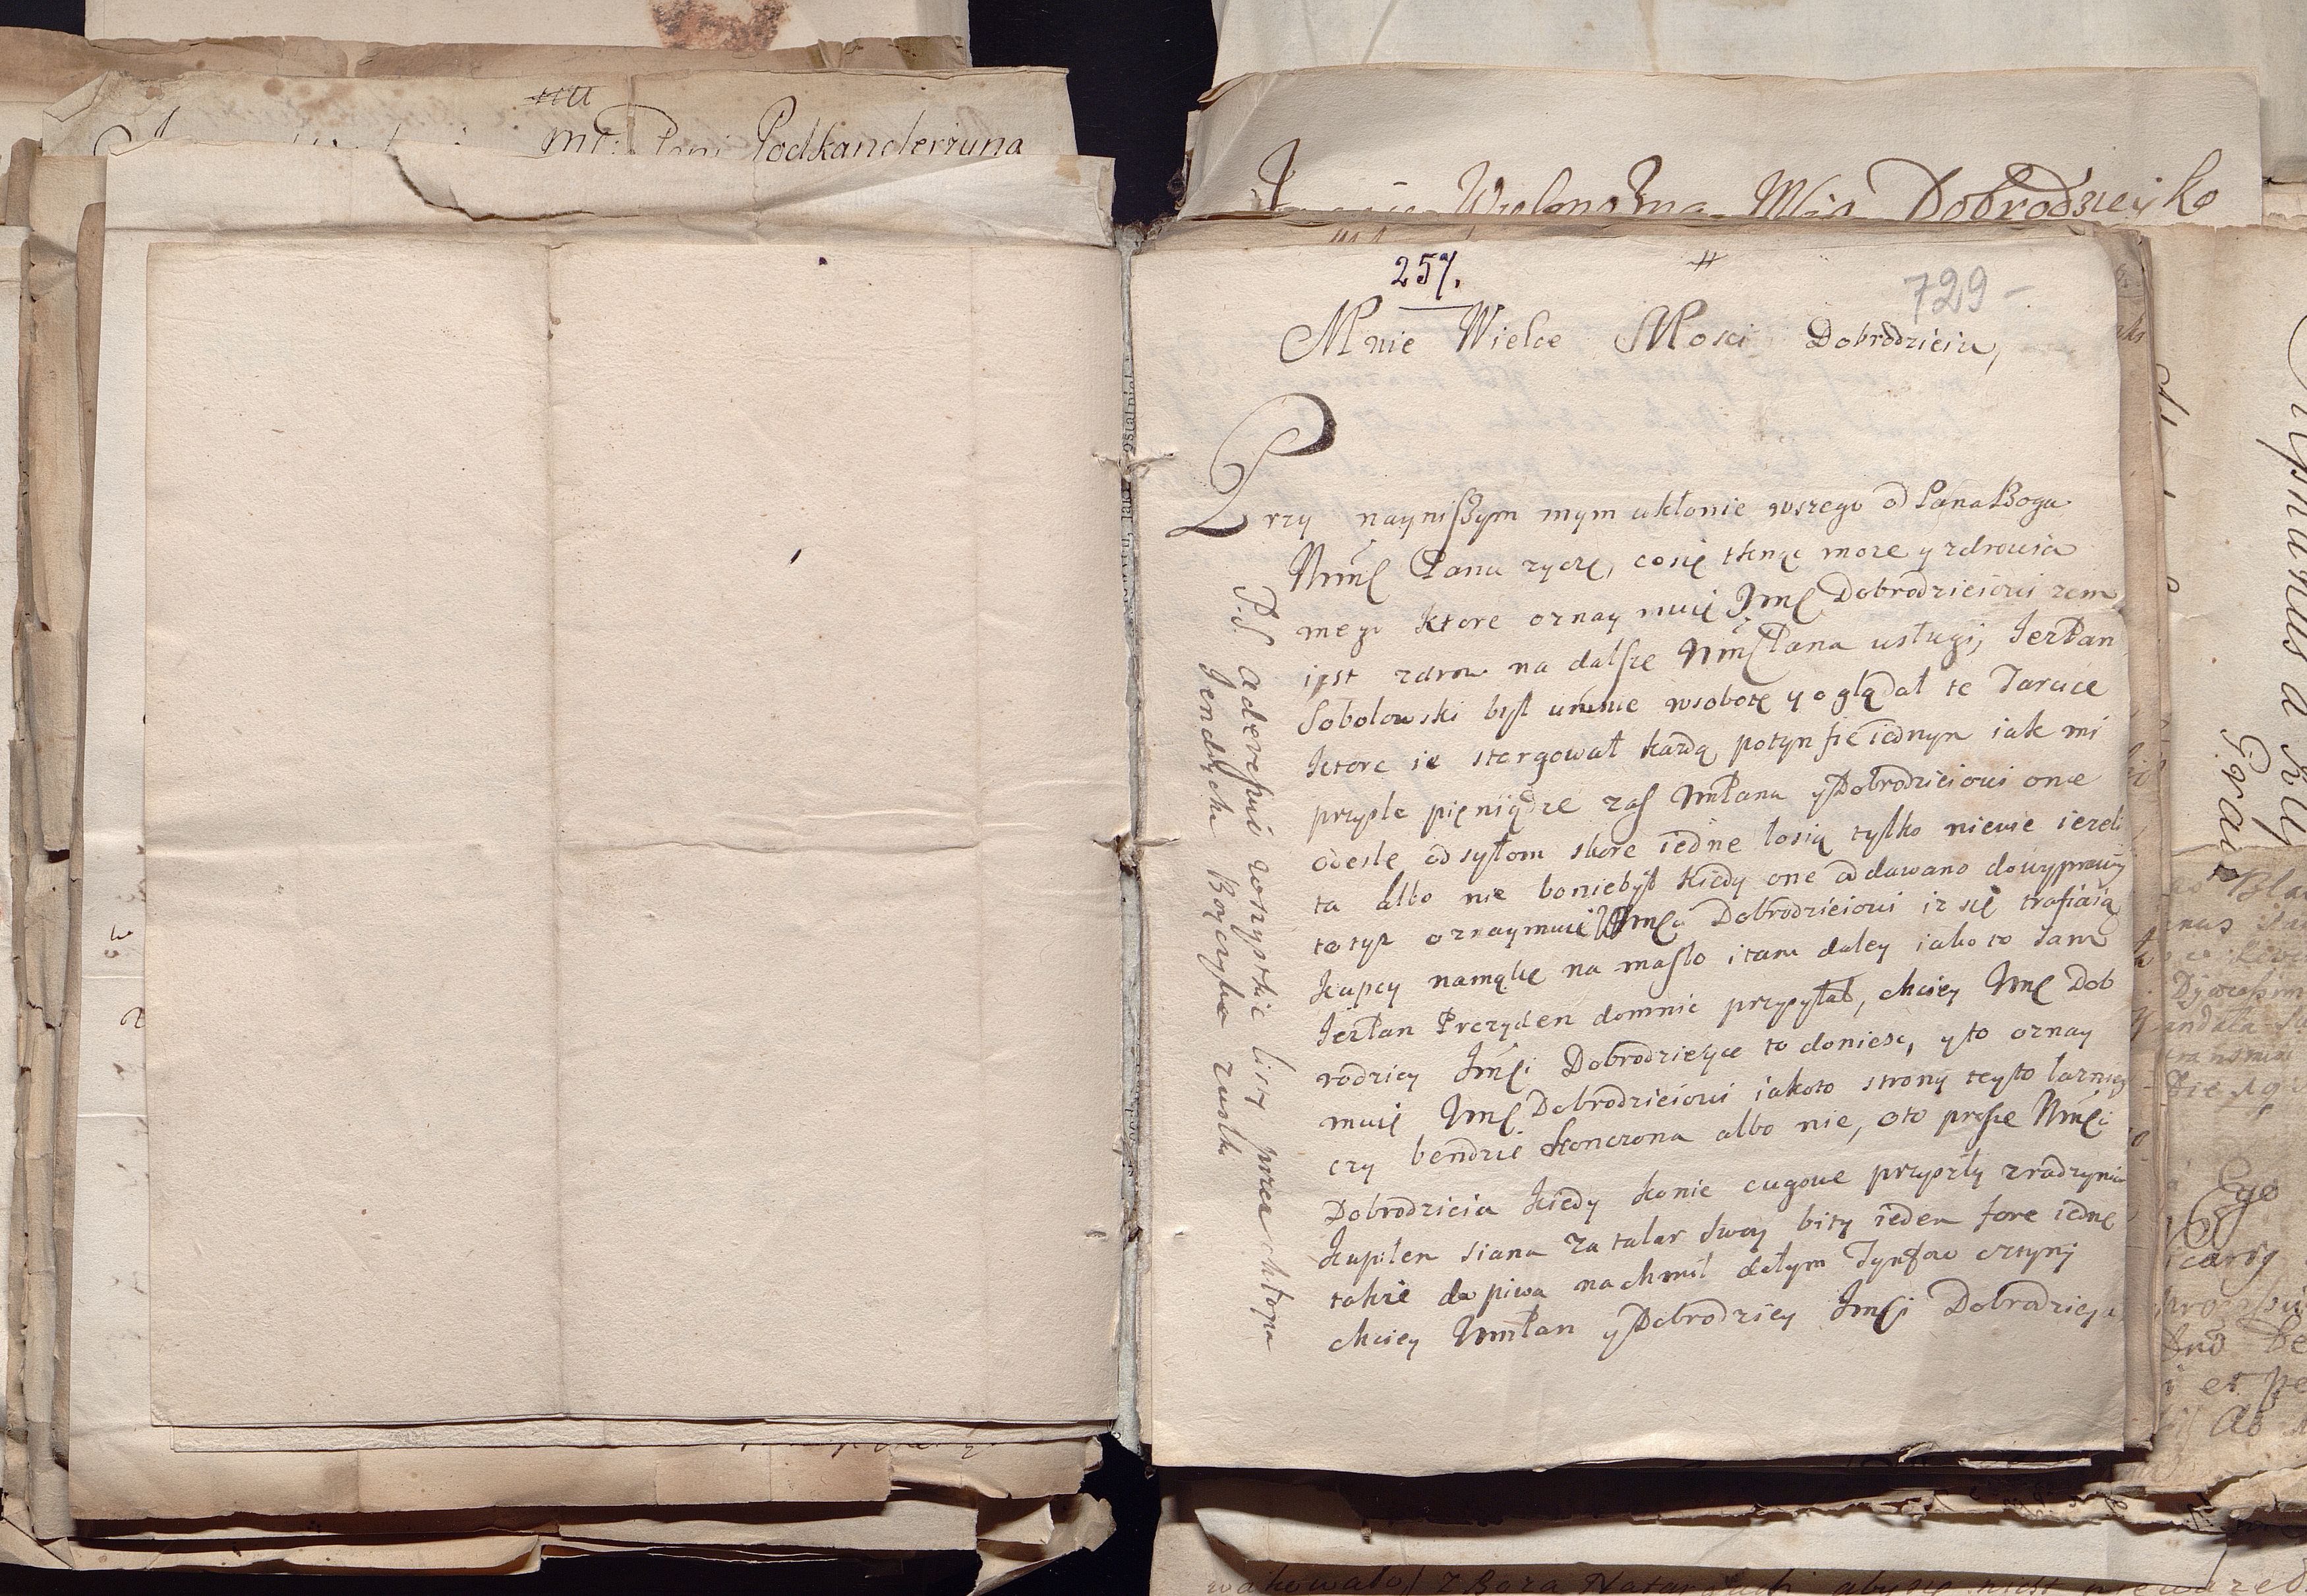 Podkanclerzyna
Wielmożna Mśa Dobrodzieyko
257.
#
729 -
Mnie Wielce Mosci Dobrodzieiu,
Przy nayniszym mym ukłonie wszego od Pana Boga
Wmć Panu zyczę, cosię tknąc moze y zdrowia
mego ktore oznaymuię Jmć Dobrodzieiowi zem
iest zdrow na dalsze WmćPana usługi, JezPan
Sobolowski był umnie wsobotę y oglądał te Tarcice
ktore ie stargował kazdą potynfie iednym iak mi
przysle pięniądze zas WmPanu yDobrodzieiowi one
odesle odsyłom skore iedne łosią tylko niewie iezeli
ta albo nie boniebył kiedy one oddawano dowyprawy
totysz oznaymuię Wmća Dobrodzieiowi iz się trafiaią
kupcy namąkę na masło itam daley iakoto sam
JezPan Prezyden domnie przysyłał, chciey Wmć Dob
rodziey Jmći Dobrodzieyce to doniesc, y to oznay
muię Wmć Dobrodzieiowi iakoto strony teysto łazniey
czy bendzie skonczona albo nie, oto prosze Wmći
Dobrodzieia kiedy konie cugowe przyszły zradzynia
kupiłem siana za talar swoy bity ieden fore iednę
takze do piwa nachmil dałym Tynfow cztyry
chciey WmPan yDobrodziey Jmći Dobrodzieyce
P.S. adzeresuie wszystkie listy przez chłopa
Jendrycha Boyczyka zuułki
Ego